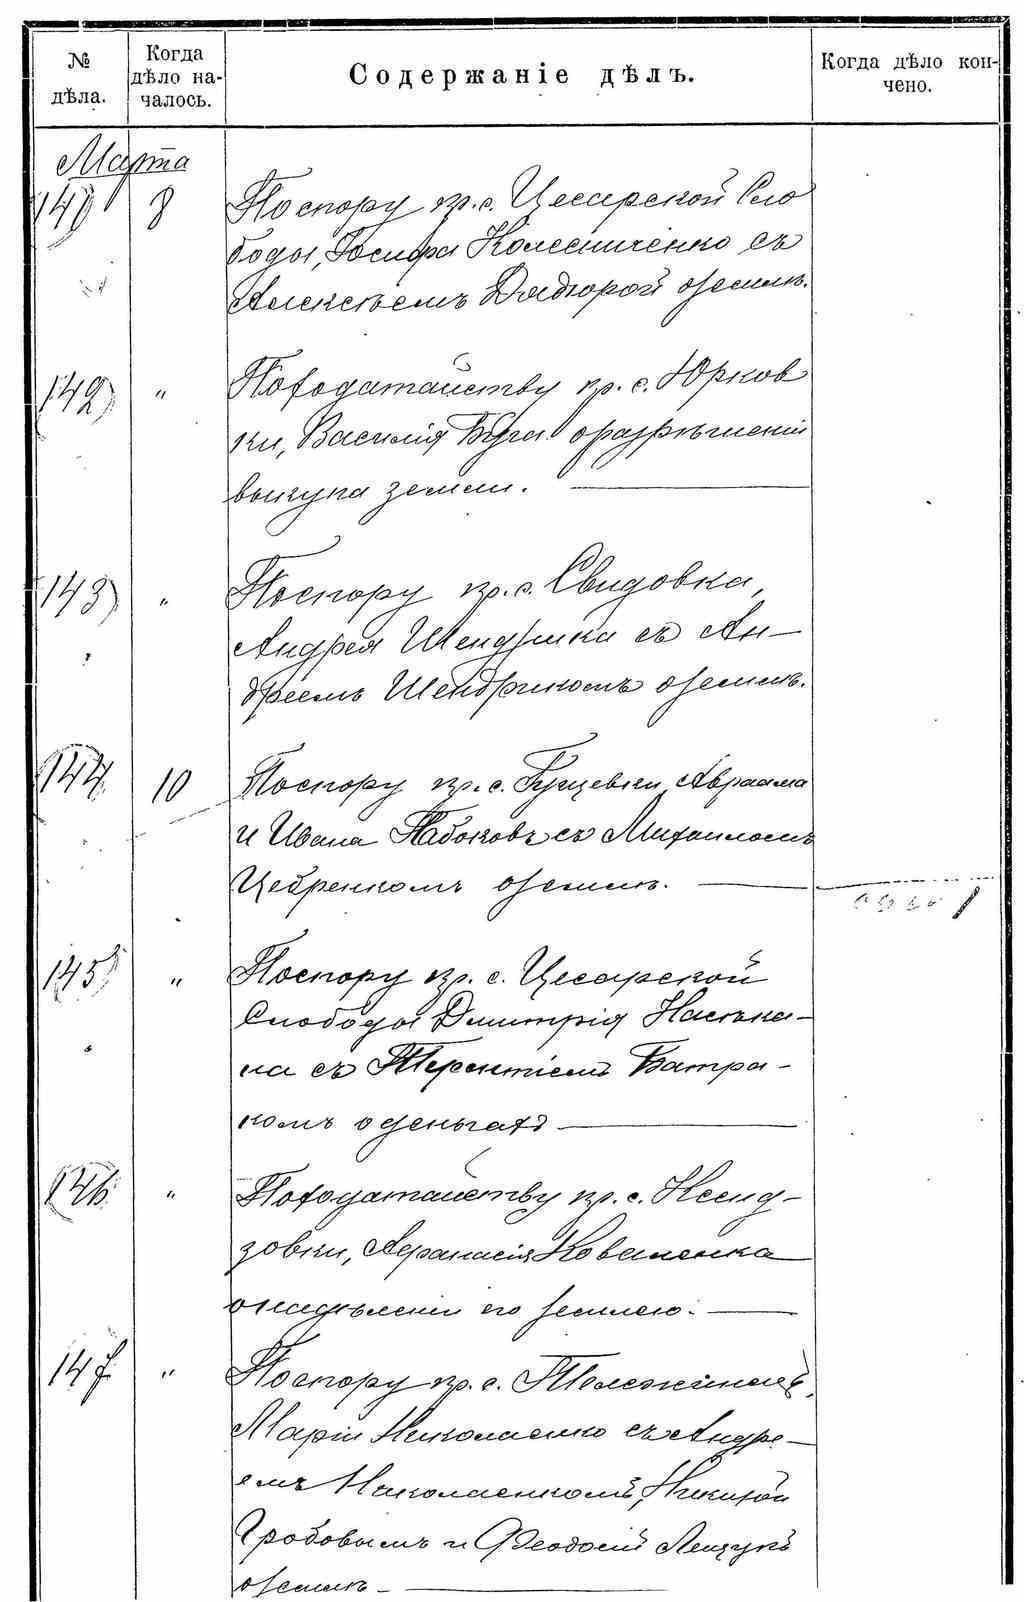 № дѣла.
Когда дѣло началось.
Содержаніе дѣлъ.
Когда дѣло кончено.
Марта
141) 8 По спору кр. с. Цесарской Сло
боды, Іосифа Колесниченко съ
Алексѣемъ Дядюрой о землѣ.
142) " По ходатайству кр. с. Юрков
ки, Василія Буга о разрѣшеніи
выкупа земли.
143) " По спору кр. с. Свидовка,
Андрея Шендрика съ Ан-
дреемъ Шендрикомъ о землѣ.
144 10 По спору кр. с. Гущевки, Авраама
и Ивана Набоковъ съ Михаиломъ
Цебренкомъ о землѣ.
145) " По спору кр. с. Цесарской
Слободы Дмитрія Насѣка-
ла съ Терентіемъ Батра-
комъ о деньгахъ
146 " По ходатайству кр. с.
зовки, Афанасія Коваленка
о надѣленіи его землею.
147 " По спору кр. с. Тележинецъ,
Маріи Николаенко съ Андре-
емъ Николаенкомъ, Никитой
Гробовымъ и Феодосій Лещукъ
о землѣ